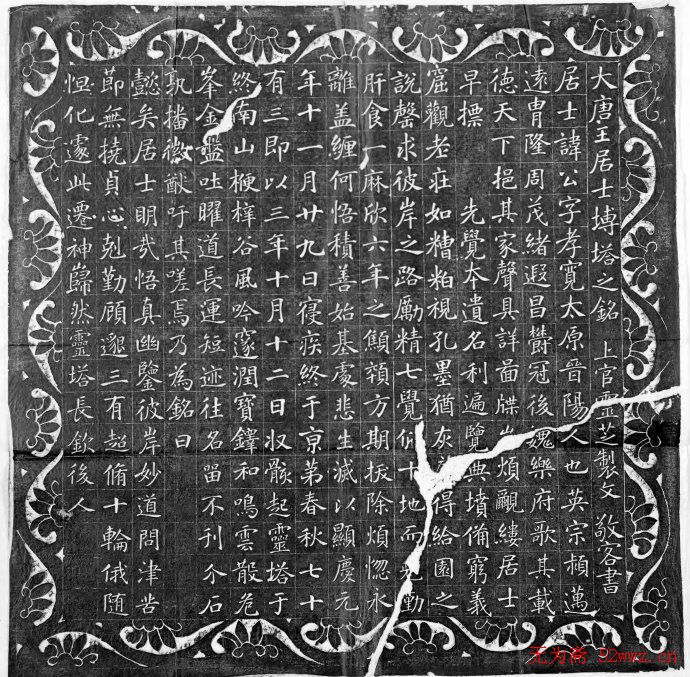 大唐王居士塼塔之銘 上官靈芝製文 敬客書
居士諱公字孝寬太原晉陽人也英宗頠邁
遠冑隆周茂緒遐昌欝冠後魏樂府歌其載
德天下挹其家聲具詳啚牒 煩覼縷居士
早標 先覺本遺名利遍覽典墳備窮義
窟觀老莊如糟粕視孔墨猶灰 得給園之
說罄求彼岸之路勵精七覺 十地而 勤
肝食一麻欣六年之顦顇方期拔除煩惚永
離盖纏何悟積善始基處悲生滅以顯慶元
年十一月廿九日寑疾終于京第春秋七十
有三即以三年十月十二日收骸起靈塔于
終南山楩梓谷風吟邃澗寶鐸和鳴雲散危
峯金盤吐曜道長運短迹往名留不刊介石
孰播徽猷吁其嗟焉乃為銘曰
懿矣居士明哉悟真幽鑒彼岸妙道問津苦
節無撓貞心剋勤顧邈三有超脩十輪俄隨
怛化遽此遷神巋然靈塔長欽後人
无为斋 92wwz.cn